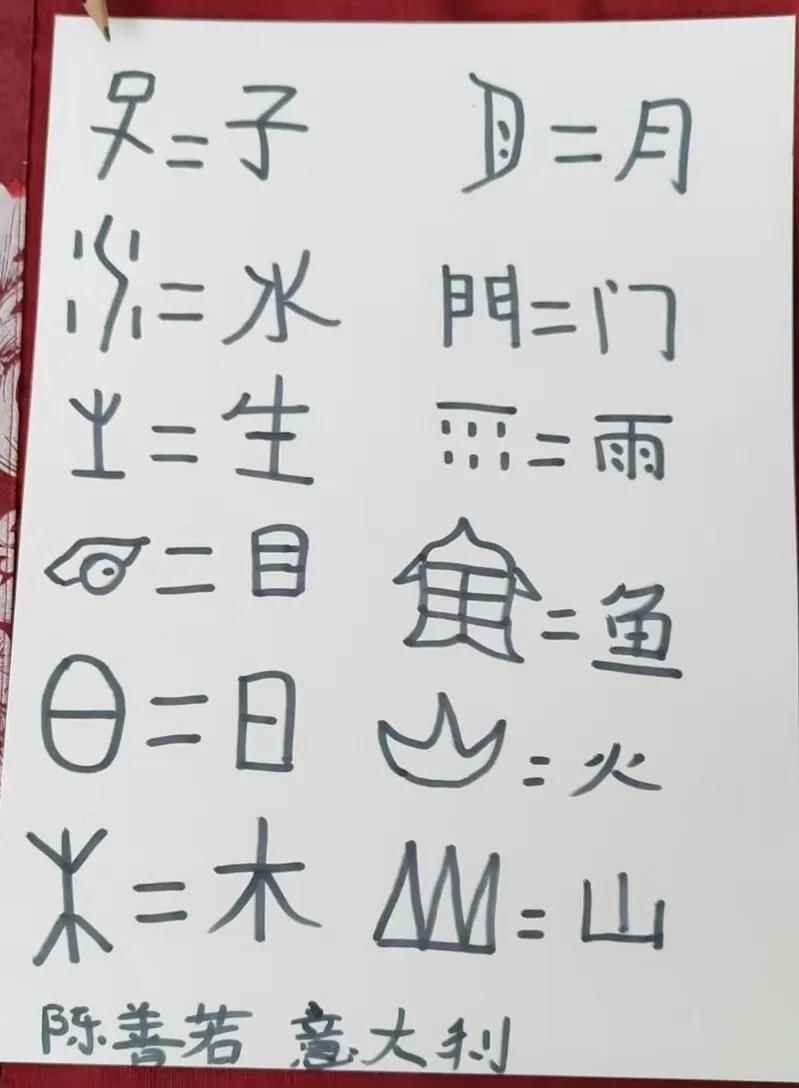 = 子
= 月
= 水
門 = 门
= 生
= 雨
= 目
= 鱼
= 日
= 火
= 木
= 山
陈善若 意大利